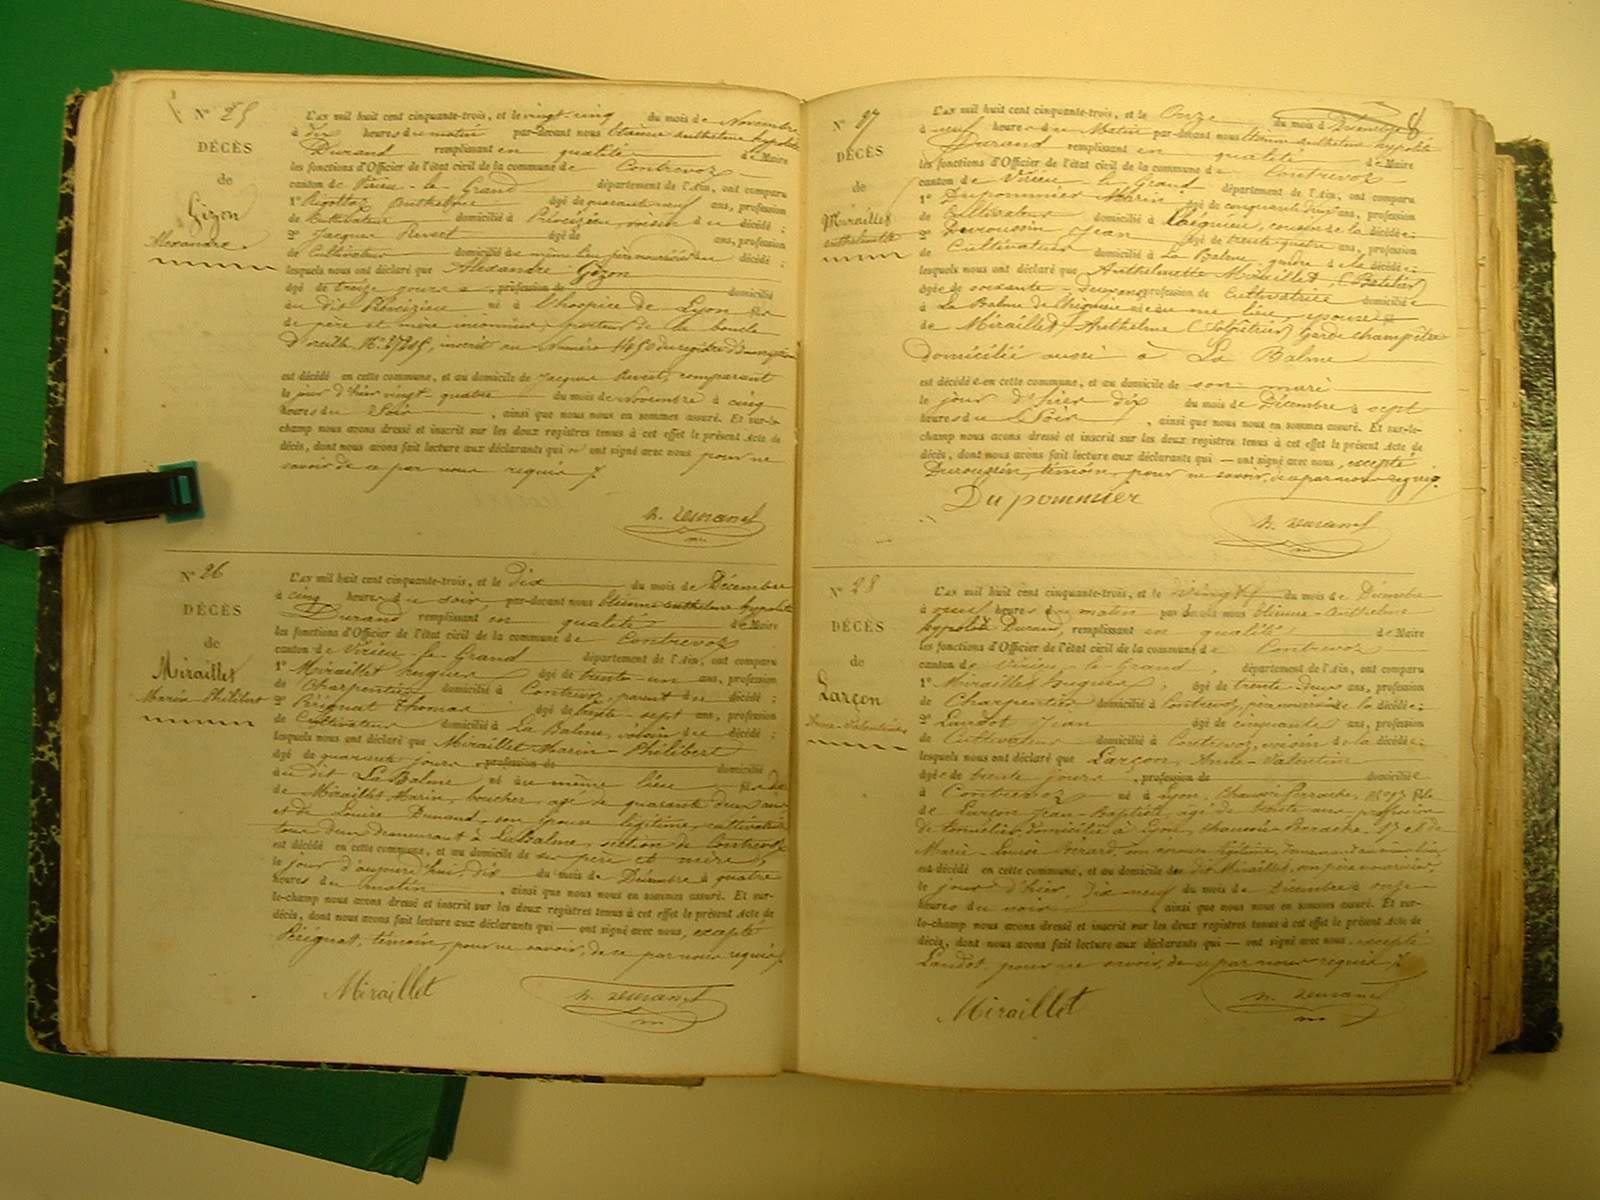 N° 25
DÉCÈS
de
Gizon
Alexandre
L'AN mil huit cent cinquante-trois, et le vingt cinq du mois de Novembre
à dix heures du matin par-devant nous Etienne anthelme hypolite
Durand remplissant en qualité de Maire
les fonctions d'Officier de l'état civil de la commune de Contrevoz
canton de Virieu-le-Grand département de l'Ain, ont comparu
1° Rigottaz Anthelme âgé de quarante neuf ans, profession
de Cultivateur domicilié à voisin du décédé ;
2° Jacques Revert âgé de ans, profession
de Cultivateur domicilié du même lieu père nourricier du décédé ;
lesquels nous ont déclaré que Alexandre Gizon
âgé de treize jours , profession de domicilié
au dit né à l'hospice de Lyon fils
de père et mère inconnus, porteur de la boucle
d'oreille N° inscrit au Numéro du registre d'inscription
est décédé en cette commune, et au domicile de Jacques Revert, comparant
le jour d'hier vingt quatre du mois de Novembre à cinq
heures du Soir , ainsi que nous nous en sommes assuré. Et sur-le-
champ nous avons dressé et inscrit sur les deux registres tenus à cet effet le présent Acte de
décès, dont nous avons fait lecture aux déclarants qui n'ont signé avec nous pour ne
savoir de ce par nous requis /.
h. Durand
N° 26
DÉCÈS
de
Miraillet
Marin Philibert
L'AN mil huit cent cinquante-trois, et le dix du mois de Décembre
à cinq heures du soir par-devant nous Etienne anthelme hypolite
Durand remplissant en qualité de Maire
les fonctions d'Officier de l'état civil de la commune de Contrevoz
canton de Virieu-le-Grand département de l'Ain, ont comparu
1° Miraillet huguer âgé de trente-un ans, profession
de Charpentier domicilié à Contrevoz, parent du décédé ;
2° Pérignat Thomas âgé de trente-sept ans, profession
de Cultivateur domicilié à La Balme, voisin du décédé ;
lesquels nous ont déclaré que Miraillet Marin-Philibert
âgé de quarante jours , profession de domicilié
au dit La Balme né au même lieu fils de
de Miraillet Marin, boucher, âgé de quarante deux ans
et de Louise Dunand, son épouse légitime, cultivatrice
tous deux demeurant à La Balme, section de Contrevoz
est décédé en cette commune, et au domicile de ses père et mère,
le jour d'aujourd'hui, dix du mois de Décembre à quatre
heures du matin , ainsi que nous nous en sommes assuré. Et sur-
le-champ nous avons dressé et inscrit sur les deux registres tenus à cet effet le présent Acte de
décès, dont nous avons fait lecture aux déclarants qui — ont signé avec nous, excepté
Pérignat, témoin, pour ne savoir, de ce par nous requis /.
Miraillet
h. Durand
8
N° 27
DÉCÈS
de
Miraillet
anthelmette
L'AN mil huit cent cinquante-trois, et le Onze du mois de Décembre
à neuf heures du Matin par-devant nous Etienne anthelme hypolite
Durand remplissant en qualité de Maire
les fonctions d'Officier de l'état civil de la commune de Contrevoz
canton de Virieu-le-Grand département de l'Ain, ont comparu
1° Dupommier Marin âgé de cinquante deux ans, profession
de Cultivateur domicilié à Chignieu, cousin de la décédée ;
2° Duroussin Jean âgé de trente-quatre ans, profession
de Cultivateur domicilié à La Balme, gendre de la décédée ;
lesquels nous ont déclaré que Anthelmette Miraillet,
âgée de soixante-deux ans profession de Cultivatrice domiciliée
à La Balme de née au même lieu, épouse
de Miraillet Anthelme garde champêtre
domicilié aussi à La Balme
est décédée en cette commune, et au domicile de son mari
le jour d'hier dix du mois de Décembre à sept
heures du Soir , ainsi que nous nous en sommes assuré. Et sur-le-
champ nous avons dressé et inscrit sur les deux registres tenus à cet effet le présent Acte de
décès, dont nous avons fait lecture aux déclarants qui — ont signé avec nous, excepté
Duroussin, témoin, pour ne savoir, de ce par nous requis /.
Dupommier
h. Durand
N° 28
DÉCÈS
de
Larçon
Anne-Valentine
L'AN mil huit cent cinquante-trois, et le vingt du mois de Décembre
à neuf heures du matin par devant nous Etienne-Anthelme
hypolite Durand, remplissant en qualité de Maire
les fonctions d'Officier de l'état civil de la commune de Contrevoz
canton de Virieu-le-Grand , département de l'Ain, ont comparu
1° Miraillet huguer , âgé de trente-deux ans, profession
de Charpentier domicilié à Contrevoz, père nourricier de la décédée ;
2° Landot Jean âgé de cinquante ans, profession
de Cultivateur domicilié à Contrevoz, voisin de la décédée ;
lesquels nous ont déclaré que Larçon, Anne-Valentine
âgée de trente jours , profession de domiciliée
à Contrevoz né à Lyon, Chaussée Perrache, n° 97 fille
de Larçon Jean-Baptiste, âgé de trente ans, profession
de tonnelier, domicilié à Lyon, Chaussée Perrache, 97 et de
Marie-Louise son épouse légitime, demeurant au même lieu
est décédée en cette commune, et au domicile du dit Miraillet, son père nourricier,
le jour d'hier, dix neuf du mois de Décembre à onze
heures du soir , ainsi que nous nous en sommes assuré. Et sur-
le-champ nous avons dressé et inscrit sur les deux registres tenus à cet effet le présent Acte de
décès, dont nous avons fait lecture aux déclarants qui — ont signé avec nous, excepté
Landot, pour ne savoir, de ce par nous requis /.
Miraillet
h. Durand